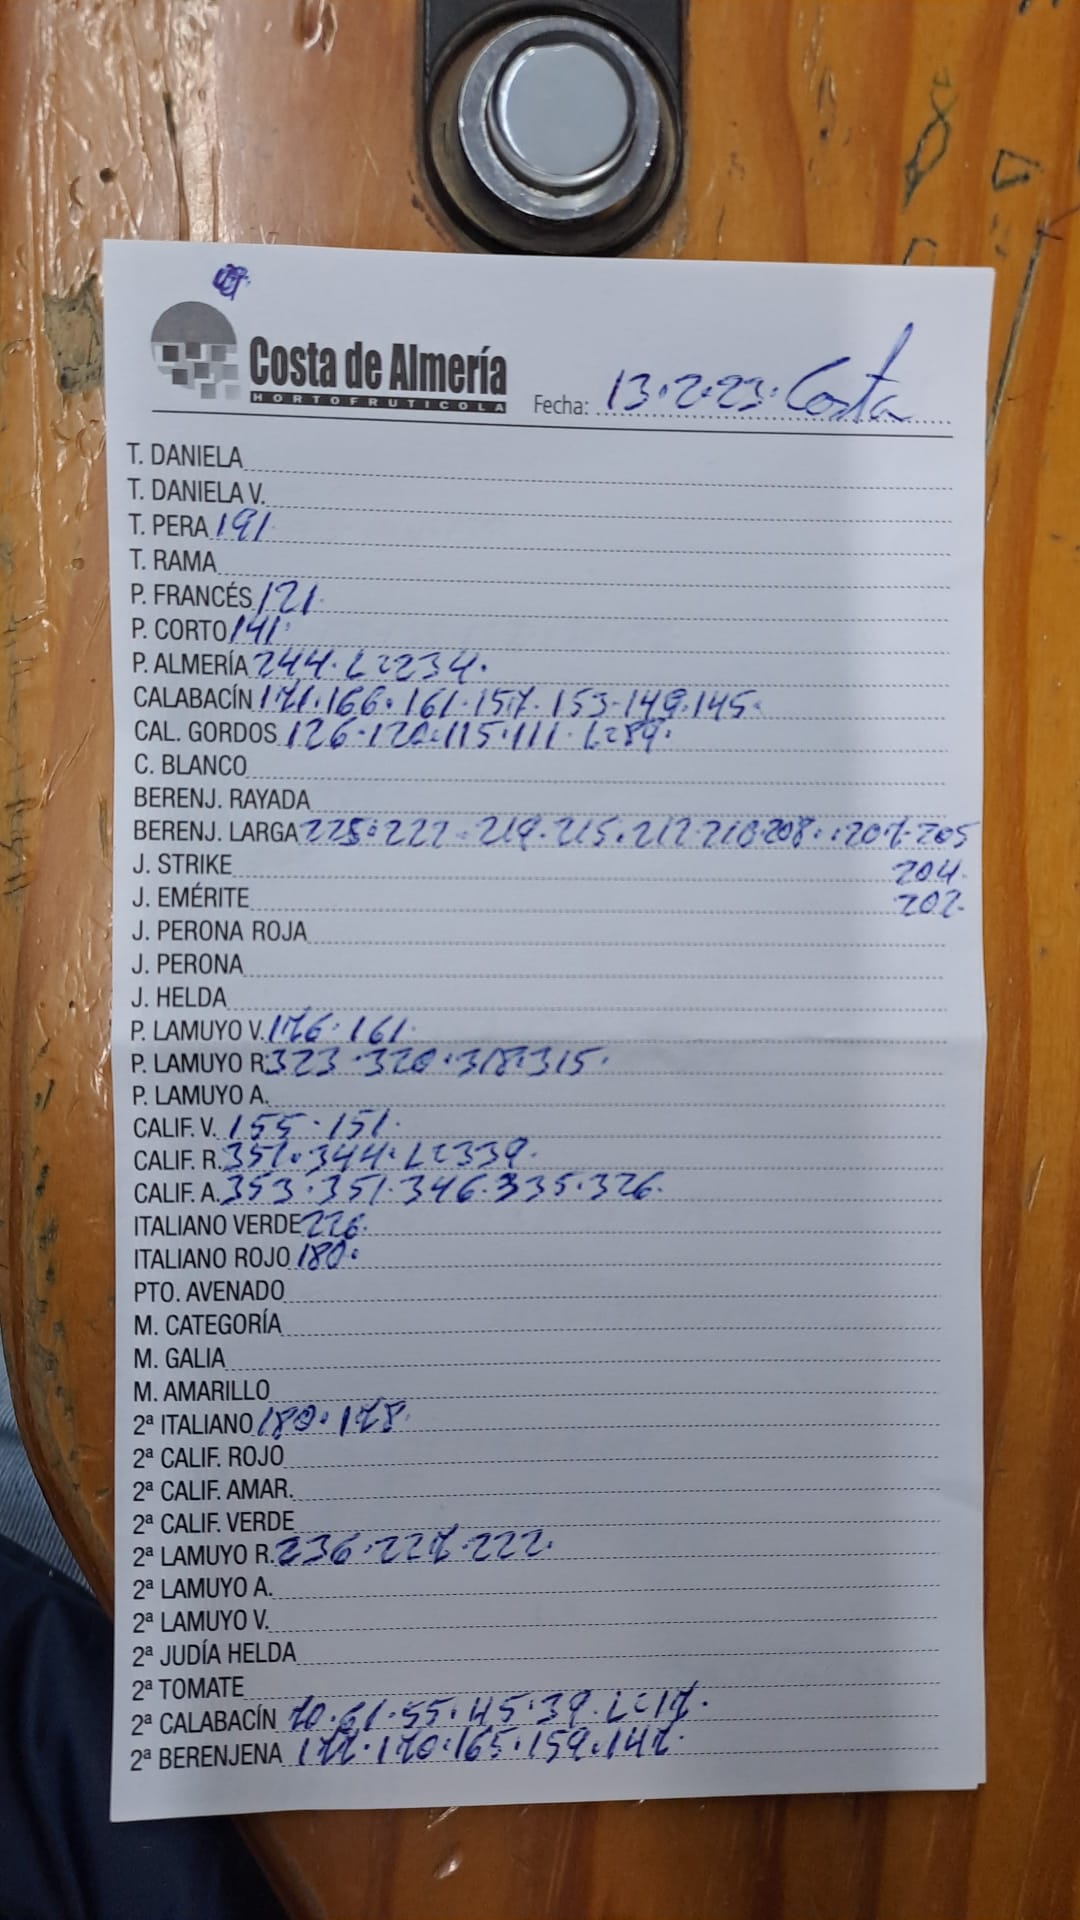 Costa de Almería
HORTOFRUTICOLA
Fecha: 13.2.23. Costa
T. DANIELA
T. DANIELA V.
T. PERA 191
T. RAMA
P. FRANCÉS 121.
P. CORTO 141.
P. ALMERÍA 244. L=234.
CALABACÍN 171.166.161.157.153-149.145.
CAL. GORDOS 126.120.115.111. L=89.
C. BLANCO
BERENJ. RAYADA
BERENJ. LARGA 225.222.219.215.212.210.208.207.205
J. STRIKE 204.
J. EMÉRITE 202.
J. PERONA ROJA
J. PERONA
J. HELDA
P. LAMUYO V. 176.161.
P. LAMUYO R. 323.320.318.315.
P. LAMUYO A.
CALIF. V. 155.151.
CALIF. R. 351.344. L=339.
CALIF. A. 353.351.346.335.326.
ITALIANO VERDE 226.
ITALIANO ROJO 180.
PTO. AVENADO
M. CATEGORÍA
M. GALIA
M. AMARILLO
2ª ITALIANO 180.178.
2ª CALIF. ROJO
2ª CALIF. AMAR.
2ª CALIF. VERDE
2ª LAMUYO R. 236.227.222.
2ª LAMUYO A.
2ª LAMUYO V.
2ª JUDÍA HELDA
2ª TOMATE
2ª CALABACÍN 70.61.55.45.39. L=17.
2ª BERENJENA 177.170.165.159.147.